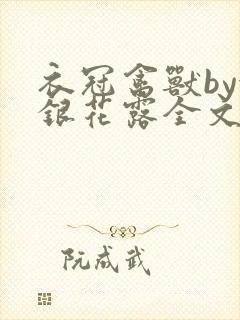 衣冠禽獸by
銀花露全文
阮成武